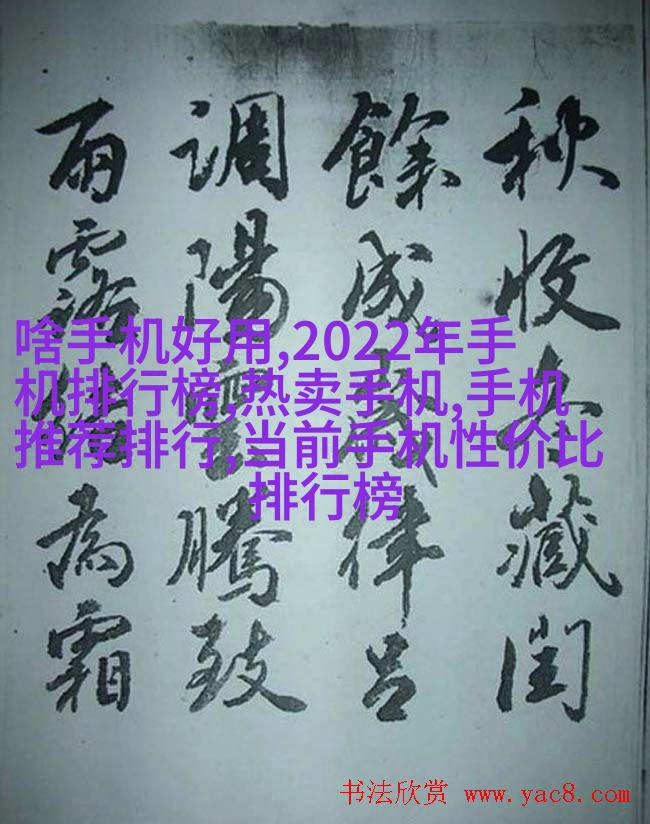 秋收冬藏閏
餘成歲律呂
調陽雲騰致
雨露結為霜
啥手机好用,2022年手
机排行榜,热卖手机,手机
推荐排行,当前手机性价比
排行榜
书法欣赏 www.yac8.com